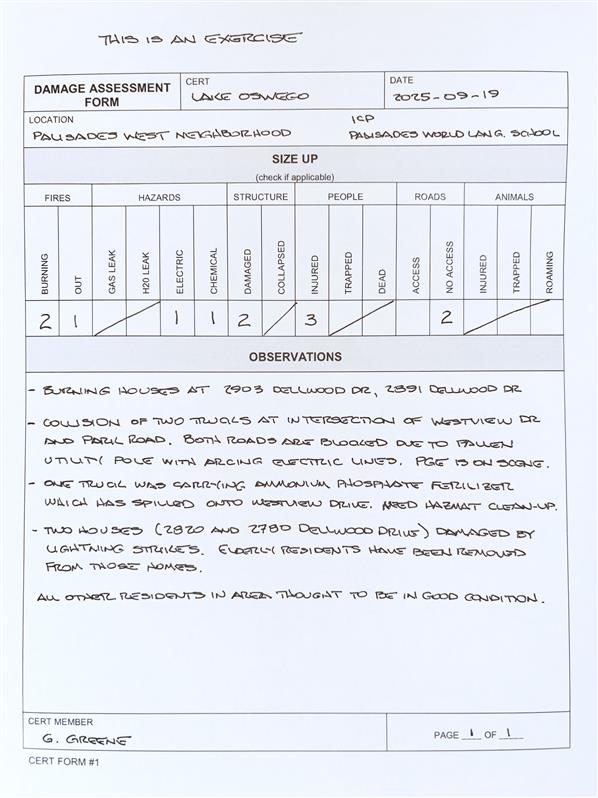 THIS IS AN EXERCISE
DAMAGE ASSESSMENT FORM
CERT
LAKE OSWEGO
DATE
2025-09-19
LOCATION
PALISADES WEST NEIGHBORHOOD
ICP
PALISADES WORLD LANG. SCHOOL
SIZE UP
(check if applicable)
FIRES HAZARDS STRUCTURE PEOPLE ROADS ANIMALS
BURNING OUT GAS LEAK H20 LEAK ELECTRIC CHEMICAL DAMAGED COLLAPSED INJURED TRAPPED DEAD ACCESS NO ACCESS INJURED TRAPPED ROAMING
2 1 1 1 2 3 2
OBSERVATIONS
- BURNING HOUSES AT 2903 DELLWOOD DR, 2891 DELLWOOD DR
- COLLISION OF TWO TRUCKS AT INTERSECTION OF WESTVIEW DR
AND PARK ROAD. BOTH ROADS ARE BLOCKED DUE TO FALLEN
UTILITY POLE WITH ARCING ELECTRIC LINES. PGE IS ON SCENE.
- ONE TRUCK WAS CARRYING AMMONIUM PHOSPHATE FERILIZER
WHICH HAS SPILLED ONTO WESTVIEW DRIVE. NEED HAZMAT CLEAN-UP.
- TWO HOUSES (2820 AND 2780 DELLWOOD DRIVE) DAMAGED BY
LIGHTNING STRIKES. ELDERLY RESIDENTS HAVE BEEN REMOVED
FROM THOSE HOMES.
ALL OTHER RESIDENTS IN AREA THOUGHT TO BE IN GOOD CONDITION.
CERT MEMBER
G. GREENE
PAGE 1 OF 1
CERT FORM #1